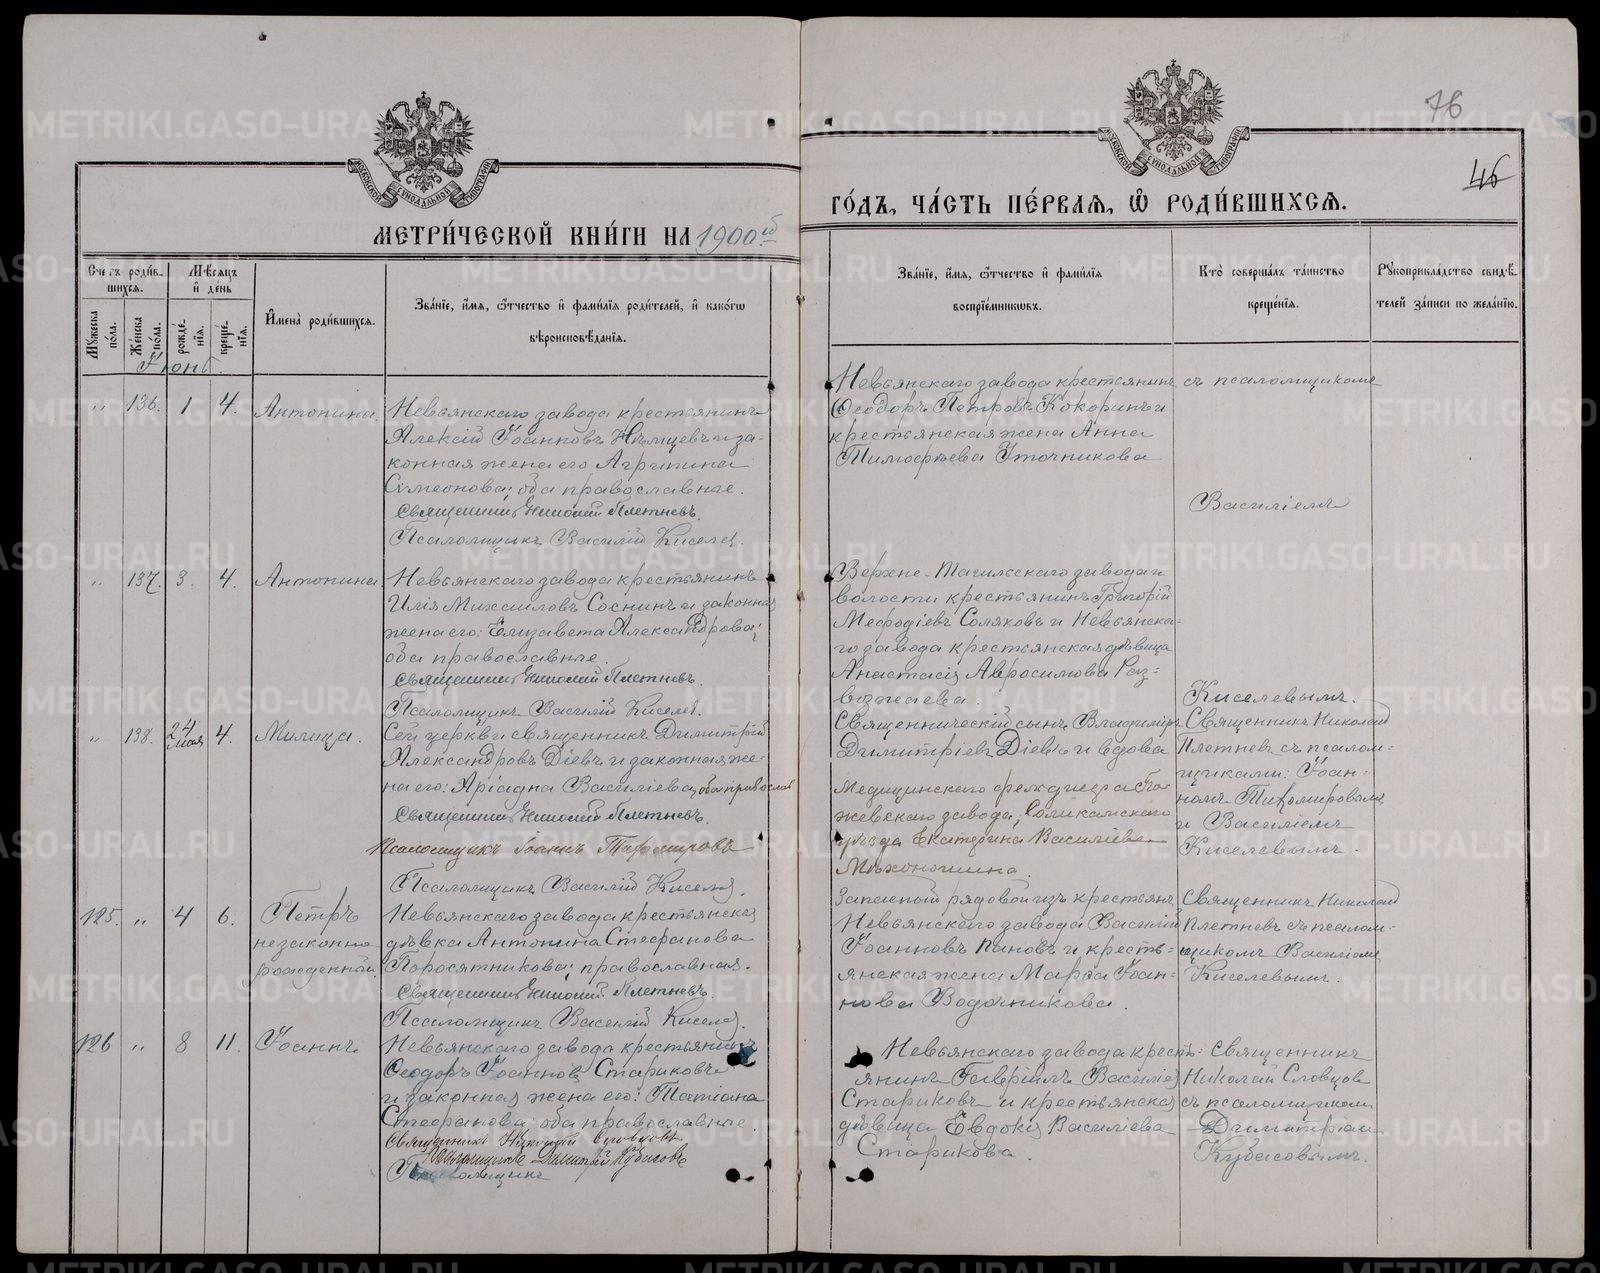 76
46
МОСКОВСКОЙ СѴНОДАЛЬНОЙ ТИПОГРАФІИ
МОСКОВСКОЙ СѴНОДАЛЬНОЙ ТИПОГРАФІИ
МЕТРИ́ЧЕСКОЙ КНИ́ГИ НА 1900й
ГО́ДЪ, ЧА́СТЬ ПЕ́РВАЯ, Ѽ РОДИ́ВШИХСЯ.
Счетъ роди́вшихся.
Мꙋ́жеска по́ла.
Же́нска по́ла.
Мѣ́сяцъ и҆ де́нь
рожде́нїя.
креще́нїя.
И҆мена̀ роди́вшихся.
Зва́нїе, и҆́мя, ѻ҆́тчество и҆ фами́лїя роди́телей, и҆ како́гѡ
вѣроисповѣ́данїя.
Зва́нїе, и҆́мя, ѻ҆́тчество и҆ фами́лїя
воспрїе́мниковъ.
Кто̀ соверша́лъ та́инство
креще́нїя.
Рꙋкоприкла́дство свидѣ́телей за́писи по жела́нїю.
Іюнь
" 136. 1 4. Антонина
Невьянскаго завода крестьянинъ
Алексій Іоанновъ Нѣмцевъ и за-
конная жена его Агрипина
Симеонова; оба православные.
Священникъ Николай Плетневъ.
Псаломщикъ Василій Киселев.
Невьянскаго завода крестьянинъ
Ѳеодоръ Петровъ Кокоринъ и
крестьянская жена Анна
Тимофѣева Уточникова
съ псаломщикомъ
Василіемъ
" 137. 3. 4. Антонина
Невьянскаго завода крестьянинъ
Илія Михаиловъ Соснинъ и законная
жена его: Елизавета Александрова;
оба православные.
Священникъ Николай Плетневъ.
Псаломщикъ Василій Киселев.
Верхне-Тагильскаго завода и
волости крестьянинъ Григорій
Мефодіевъ Соляковъ и Невьянска-
го завода крестьянская дѣвица
Анастасія Абросимова Раз-
возжаева.
Киселевымъ.
" 138. 24 мая 4. Милица.
Сей церкви священникъ Димитрій
Александровъ Діевъ и законная же-
на его: Аріадна Василіева, оба православ
Священникъ Николай Плетневъ.
Псаломщикъ Іоаннъ Тихомировъ
Псаломщикъ Василій Киселев.
Священническій сынъ Владиміръ
Димитріевъ Діевъ и вдова
Медицинскаго фельдшера По-
жевскаго завода, Соликамскаго
уѣзда Екатерина Василіева
Мохоношина.
Священникъ Николай
Плетневъ съ псалом-
щиками: Іоан-
номъ Тихомировымъ
и Василіемъ
Киселевымъ.
125. " 4 6. Петръ
незаконно
рожденный.
Невьянскаго завода крестьянская
дѣвка Антонина Стефанова
Поросятникова; православная.
Священникъ Николай Плетневъ.
Псаломщикъ Василій Киселев.
Запасный рядовой изъ крестьянъ
Невьянскаго завода Василій
Іоанновъ Пановъ и кресть-
янская жена Марѳа Іоан-
нова Водочникова.
Священникъ Николай
Плетневъ съ псалом-
щикомъ Василіемъ
Киселевымъ.
126 " 8 11. Іоаннъ
Невьянскаго завода крестьянинъ
Ѳеодоръ Іоанновъ Стариковъ
и законная жена его: Татіана
Стефанова; оба православные.
Священникъ Николай Словцовъ
Псаломщикъ Димитрій Кубасовъ
Псаломщикъ
Невьянскаго завода кресть-
янинъ Гавріилъ Василіев
Стариковъ и крестьянская
дѣвица Евдокія Василіева
Старикова.
Священникъ
Николай Словцовъ
съ псаломщикомъ
Димитріемъ
Кубасовымъ.
METRIKI.GASO-URAL.RU